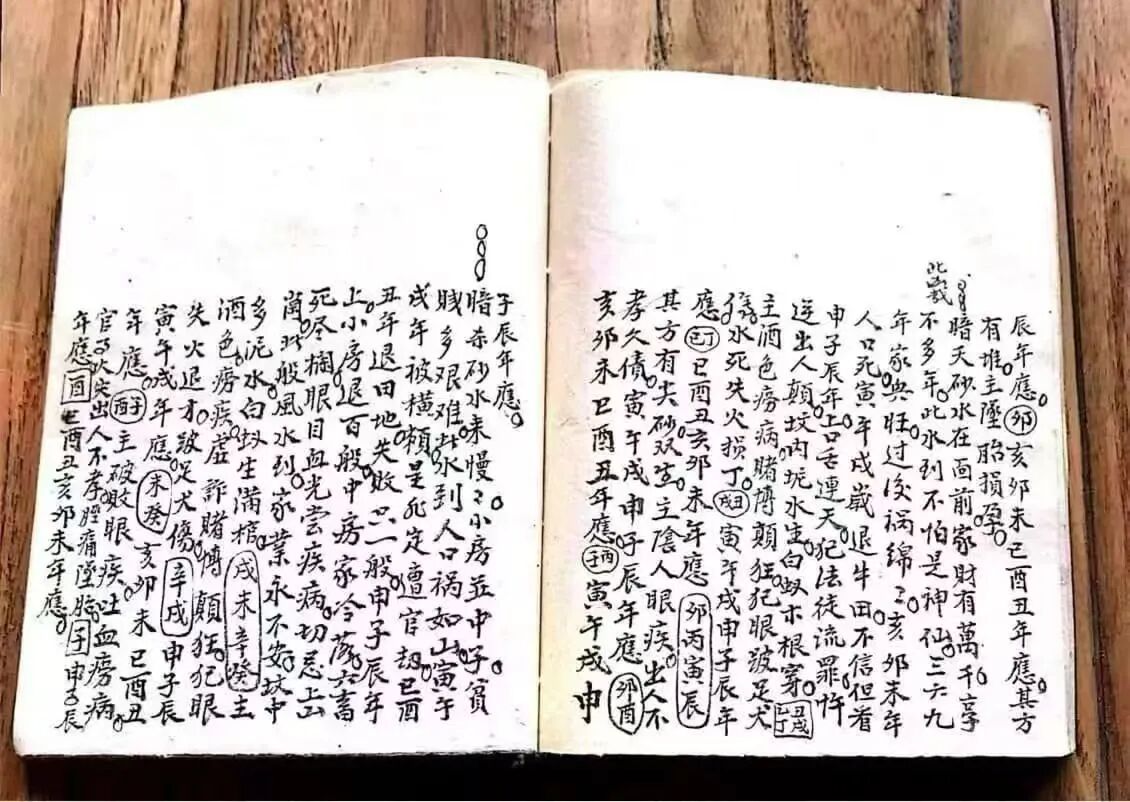 辰年應。卯亥卯未巳酉丑年應。其方
有堆主墜胎損孕。
暗天砂水在面前。家財有萬千。享
不多年。此水到不怕是神仙。三六九
年家興旺过後祸綿〻亥卯未年
人口死。寅午戌歲退牛田。不信但着
申子辰年上口舌連天。犯法徒流罪忤
逆出人顛。坟内坭水生白蚁木根穿。丑戌巳丁
主酒色痨病。賭博顛狂。犯眼跛足犬
傷。水死失火損丁。戌丑寅午戌申子辰年
應。巳丁巳酉丑亥卯未年應。卯丙寅辰
其方有夫砂双生。主陰人眼疾。出人不
孝久債。寅午戌申子辰年應。卯酉
亥卯未巳酉丑年應。壬丙寅午戌申
子辰年應。
暗杀砂水来慢〻。小房並中子貧
賎多艰难。此水到人口祸如山。寅午
戌年被横頼是死定遭官劫。巳酉
丑年退田地失敗只一般。申子辰年
上小房退百般。中房家冷落。六畜
死尽。捆眼目血光尝疾病。切忌上山
崗。此般風水到。家業永不安。坟中
多泥水白蚁生滿棺。戌未辛癸主
酒色痨疾。虚詐賭博。顛狂。犯眼
失火退才。跛足犬傷。辛戌申子辰
寅午戌年應。未癸亥卯未巳酉丑
年應。子酉主破敗眼疾。吐血痨病。
官司火災出人不孝。脛痛墜胎。子申子辰
年應。酉巳酉丑亥卯未年應。